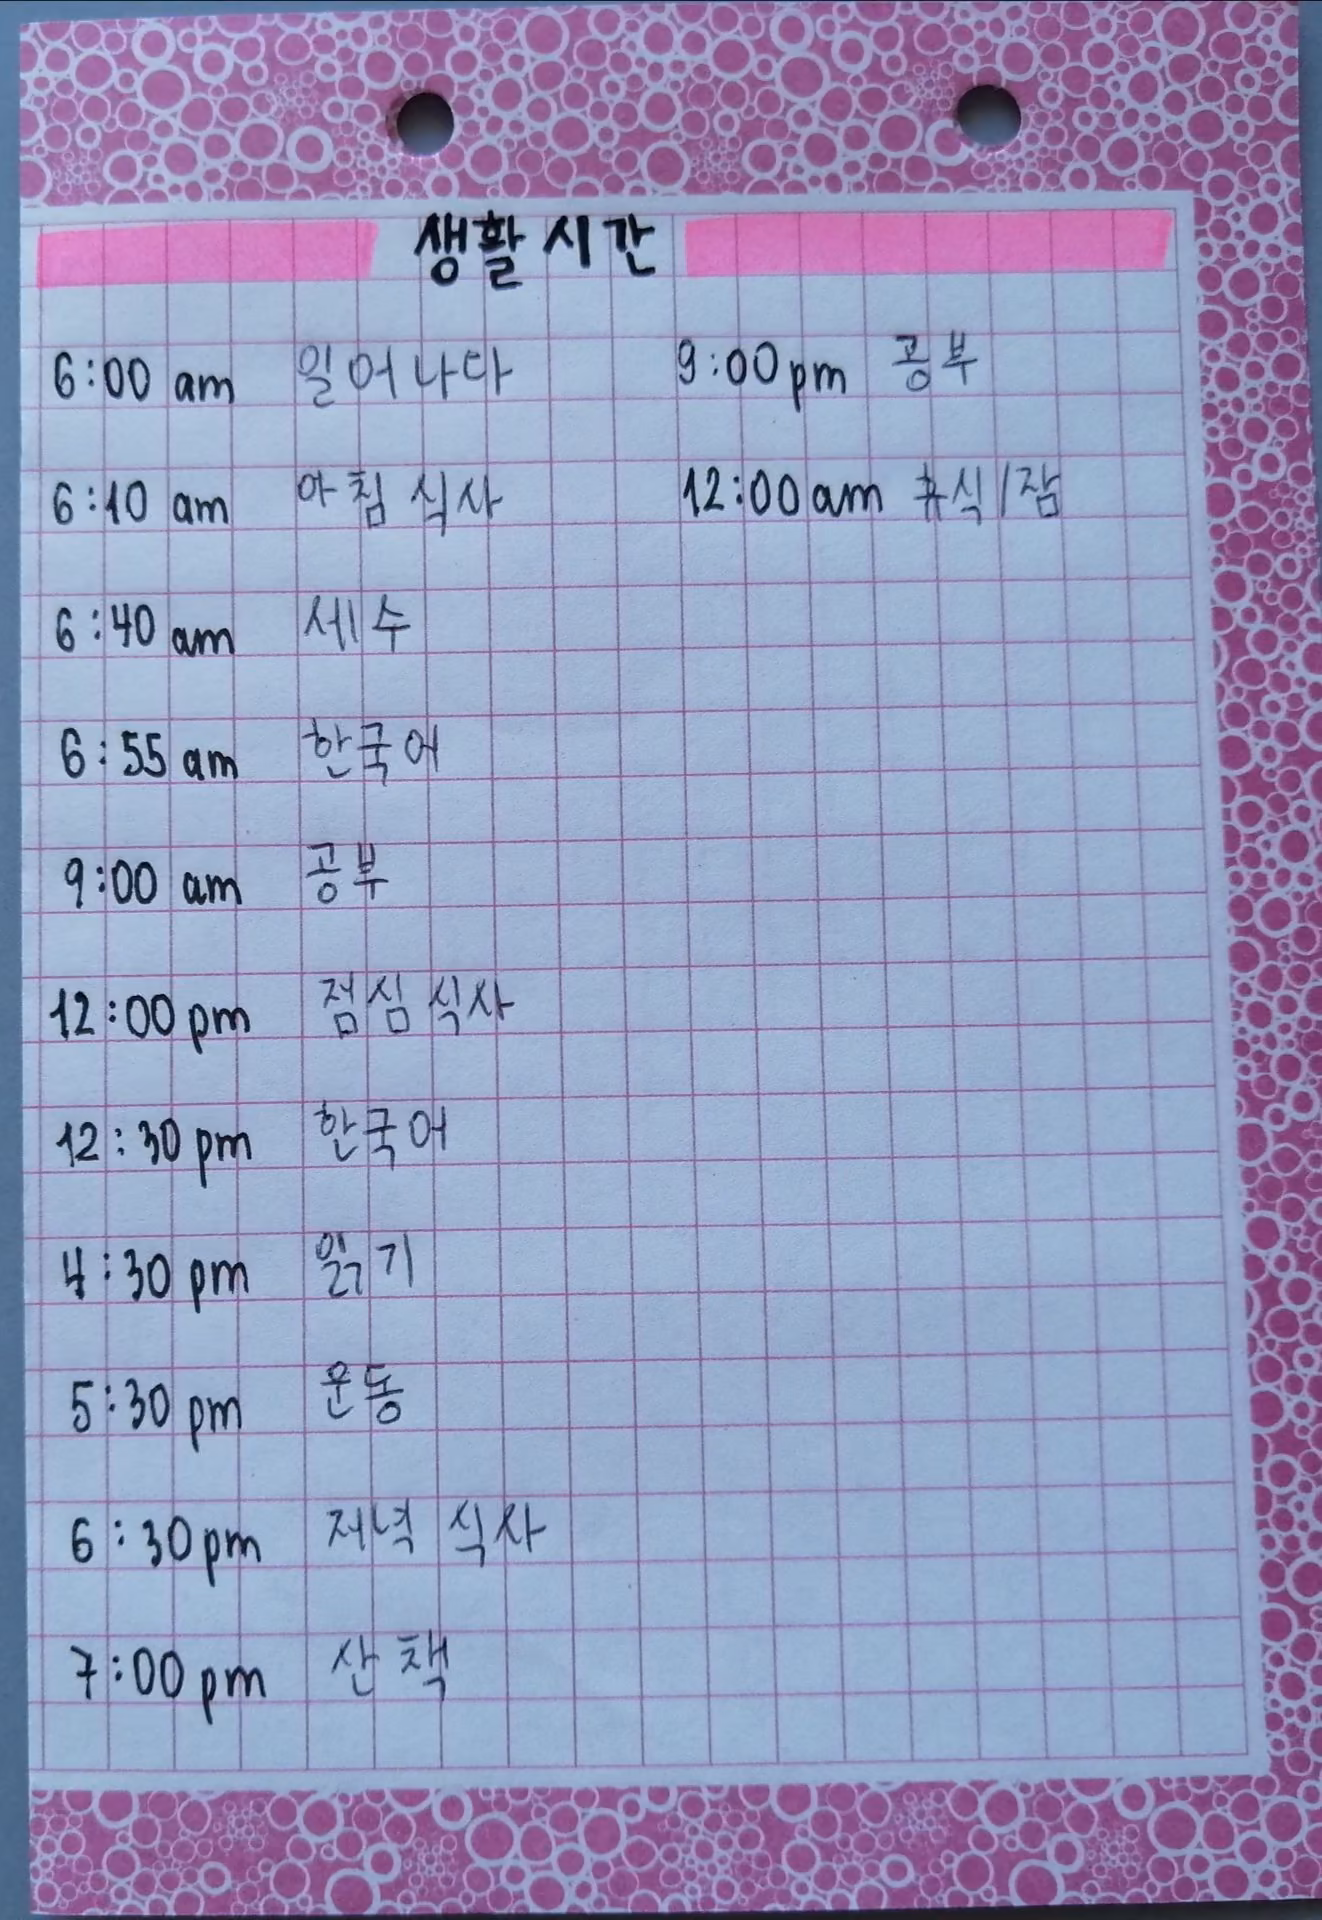 생활 시간
6:00 am 일어나다
6:10 am 아침 식사
6:40 am 세수
6:55 am 한국어
9:00 am 공부
12:00 pm 점심 식사
12:30 pm 한국어
4:30 pm 읽기
5:30 pm 운동
6:30 pm 저녁 식사
7:00 pm 산책
9:00 pm 공부
12:00 am 휴식/잠